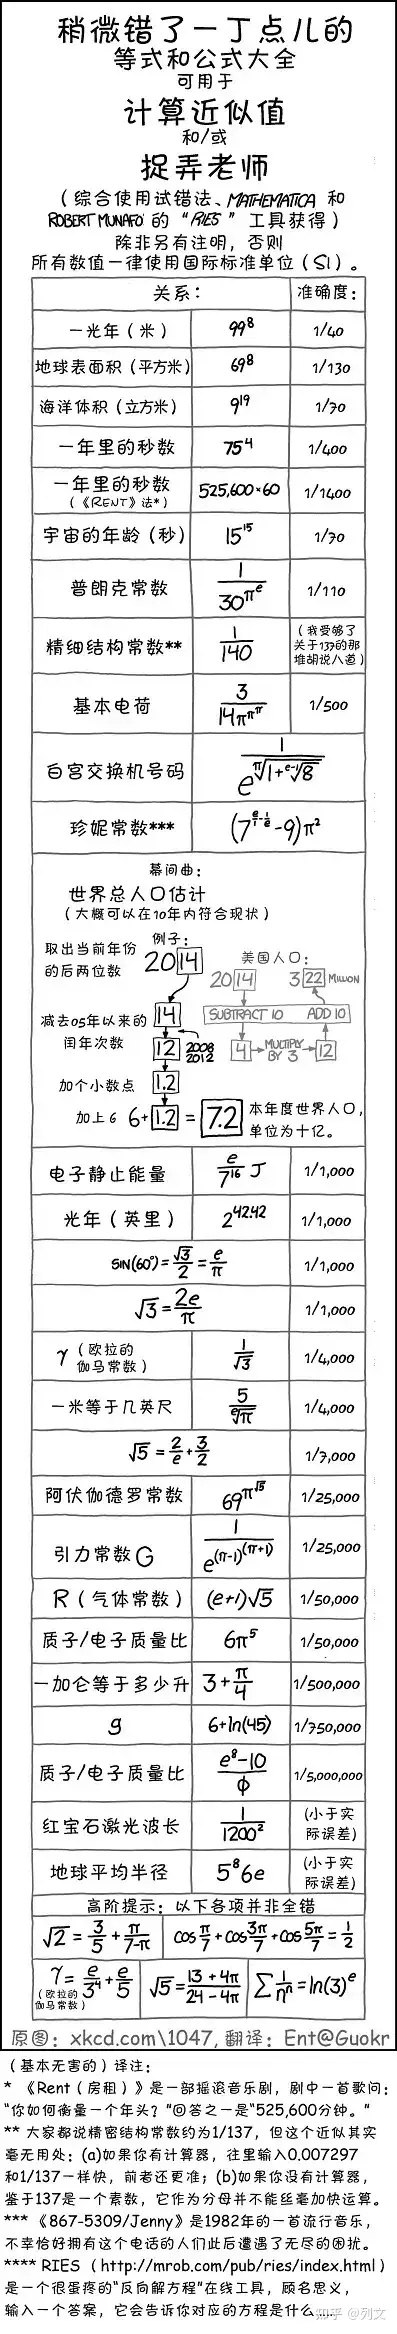 稍微错了一丁点儿的
等式和公式大全
可用于
计算近似值
和/或
捉弄老师
(综合使用试错法、MATHEMATICA 和
ROBERT MUNAFO 的 “RIES” 工具获得)
除非另有注明，否则
所有数值一律使用国际标准单位(SI)。
关系: 准确度:
一光年(米) 99^8 1/40
地球表面积(平方米) 69^8 1/130
海洋体积(立方米) 9^19 1/70
一年里的秒数 75^4 1/400
一年里的秒数 (《RENT》法*) 525,600·60 1/1400
宇宙的年龄(秒) 15^15 1/70
普朗克常数 1/(30^(π^e)) 1/110
精细结构常数** 1/140 (我受够了关于137的那堆胡说八道)
基本电荷 3/(14π^(π^π)) 1/500
白宫交换机号码 1/(e^(π√(1+(e-1)√8)))
珍妮常数*** (7^(e/1-1/e)-9)π²
幕间曲:
世界总人口估计
(大概可以在10年内符合现状)
取出当前年份的后两位数 例子: 2014
减去05年以来的闰年次数 14
12 2008 2012
加个小数点 1.2
加上6 6+1.2=7.2 本年度世界人口，单位为十亿。
美国人口:
2014 322 MILLION
SUBTRACT 10 ADD 10
4 MULTIPLY BY 3 12
电子静止能量 e/7^16 J 1/1,000
光年(英里) 2^42.42 1/1,000
SIN(60°)=√3/2=e/π 1/1,000
√3=2e/π 1/1,000
γ(欧拉的伽马常数) 1/√3 1/4,000
一米等于几英尺 5/(e√π) 1/4,000
√5=2/e+3/2 1/7,000
阿伏伽德罗常数 69^(π^√5) 1/25,000
引力常数G 1/(e^((π-1)^(π+1))) 1/25,000
R(气体常数) (e+1)√5 1/50,000
质子/电子质量比 6π^5 1/50,000
一加仑等于多少升 3+π/4 1/500,000
g 6+ln(45) 1/750,000
质子/电子质量比 (e^8-10)/ϕ 1/5,000,000
红宝石激光波长 1/1200² (小于实际误差)
地球平均半径 5^8 6e (小于实际误差)
高阶提示: 以下各项并非全错
√2=3/5+π/(7-π) cos π/7+cos 3π/7+cos 5π/7=1/2
γ=e/3^4+e/5 (欧拉的伽马常数) √5=(13+4π)/(24-4π) Σ1/n^n=ln(3)^e
原图: xkcd.com\1047, 翻译: Ent@Guokr
(基本无害的)译注:
* 《Rent(房租)》是一部摇滚音乐剧，剧中一首歌问:
“你如何衡量一个年头?”回答之一是“525,600分钟。”
** 大家都说精密结构常数约为1/137，但这个近似其实
毫无用处: (a)如果你有计算器，往里输入0.007297
和1/137一样快，前者还更准; (b)如果你没有计算器，
鉴于137是一个素数，它作为分母并不能丝毫加快运算。
*** 《867-5309/Jenny》是1982年的一首流行音乐，
不幸恰好拥有这个电话的人们此后遭遇了无尽的困扰。
**** RIES (http://mrob.com/pub/ries/index.html)
是一个很蛋疼的“反向解方程”在线工具，顾名思义，
输入一个答案，它会告诉你对应的方程是什么……
知乎 @列文